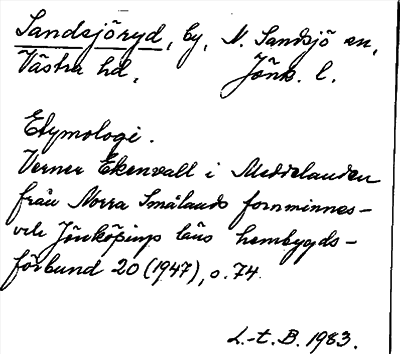 Sandsjöryd, by, N. Sandsjö sn,
Västra hd, Jönk. l.
Etymologi.
Verner Ekenvall i Meddelanden
från Norra Smålands fornminnes-
och Jönköpings läns hembygds-
förbund 20 (1947), s. 74.
L.-t. B. 1983.